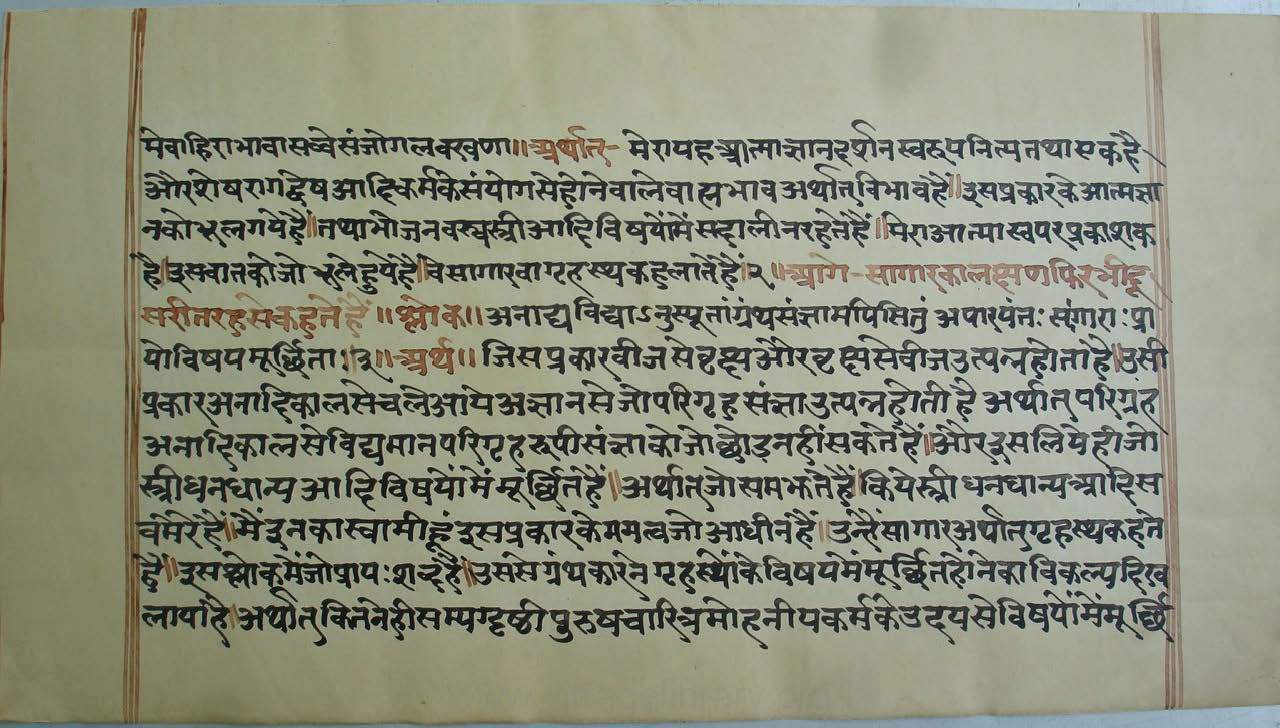 मेवाहिराभावासव्वेसंजोगलक्खणा॥अर्थात्- मेरायहआत्माज्ञानदर्शनस्वरूपनित्यतथाएकहै
औरशेषरागद्वेषआदिकर्मकेसंयोगसेहोनेवालेवाह्यभावअर्थातविभावहैं॥इसप्रकारकेआत्मज्ञा
नकोभूलगयेहैं॥तथाभोजनवस्त्रस्त्रीआदिविषयोंमेंसदालीनरहतेहैं॥मेराआत्मास्वपरप्रकाशक
है॥इसवातकोजोभूलेहुयेहै॥वेसागारवागृहस्थकहलातेहैं॥२॥आगे-सागारकालक्षणफिरभीदू
सरीतरहसेकहतेहैं॥श्लोक॥अनाद्यविद्याऽनुस्यूतांग्रंथसंज्ञामपिसितुं अपारयंतः सागाराः प्रा
योविषयमूर्छिता॥३॥अर्थ॥जिसप्रकारवीजसेवृक्षऔरवृक्षसेवीजउत्पन्नहोताहै॥उसी
प्रकारअनादिकालसेचलेआयेअज्ञानसेजोपरिगृहसंज्ञाउत्पन्नहोतीहै अर्थातपरिग्रह
अनादिकालसेविद्यमानपरिगृहरूपीसंज्ञाकोजोछोडनहींसकतेहैं॥औरइसलियेहीजो
स्त्रीधनधान्यआदिविषयोंमेंमूर्छितहैं॥अर्थातजोसमझतेहैं॥कियेस्त्रीधनधान्यआदिस
वमेरेहैं॥मैंइनकास्वामीहूंइसप्रकारकेममत्वजोआधीनहैं॥उन्हैंसागारअर्थातगृहस्थकहते
हैं॥इसश्लोकमेंजोप्रायःशब्दहै॥उससेग्रंथकारनेगृहस्थोंकेविषयमेंमूर्छितहोनेकाविकल्पदिख
लायाहै॥अर्थातकितनेहीसम्यग्दृष्ठीपुरुषचारित्रमोहनीयकर्मकेउदयसेविषयोंमेंमूर्छि